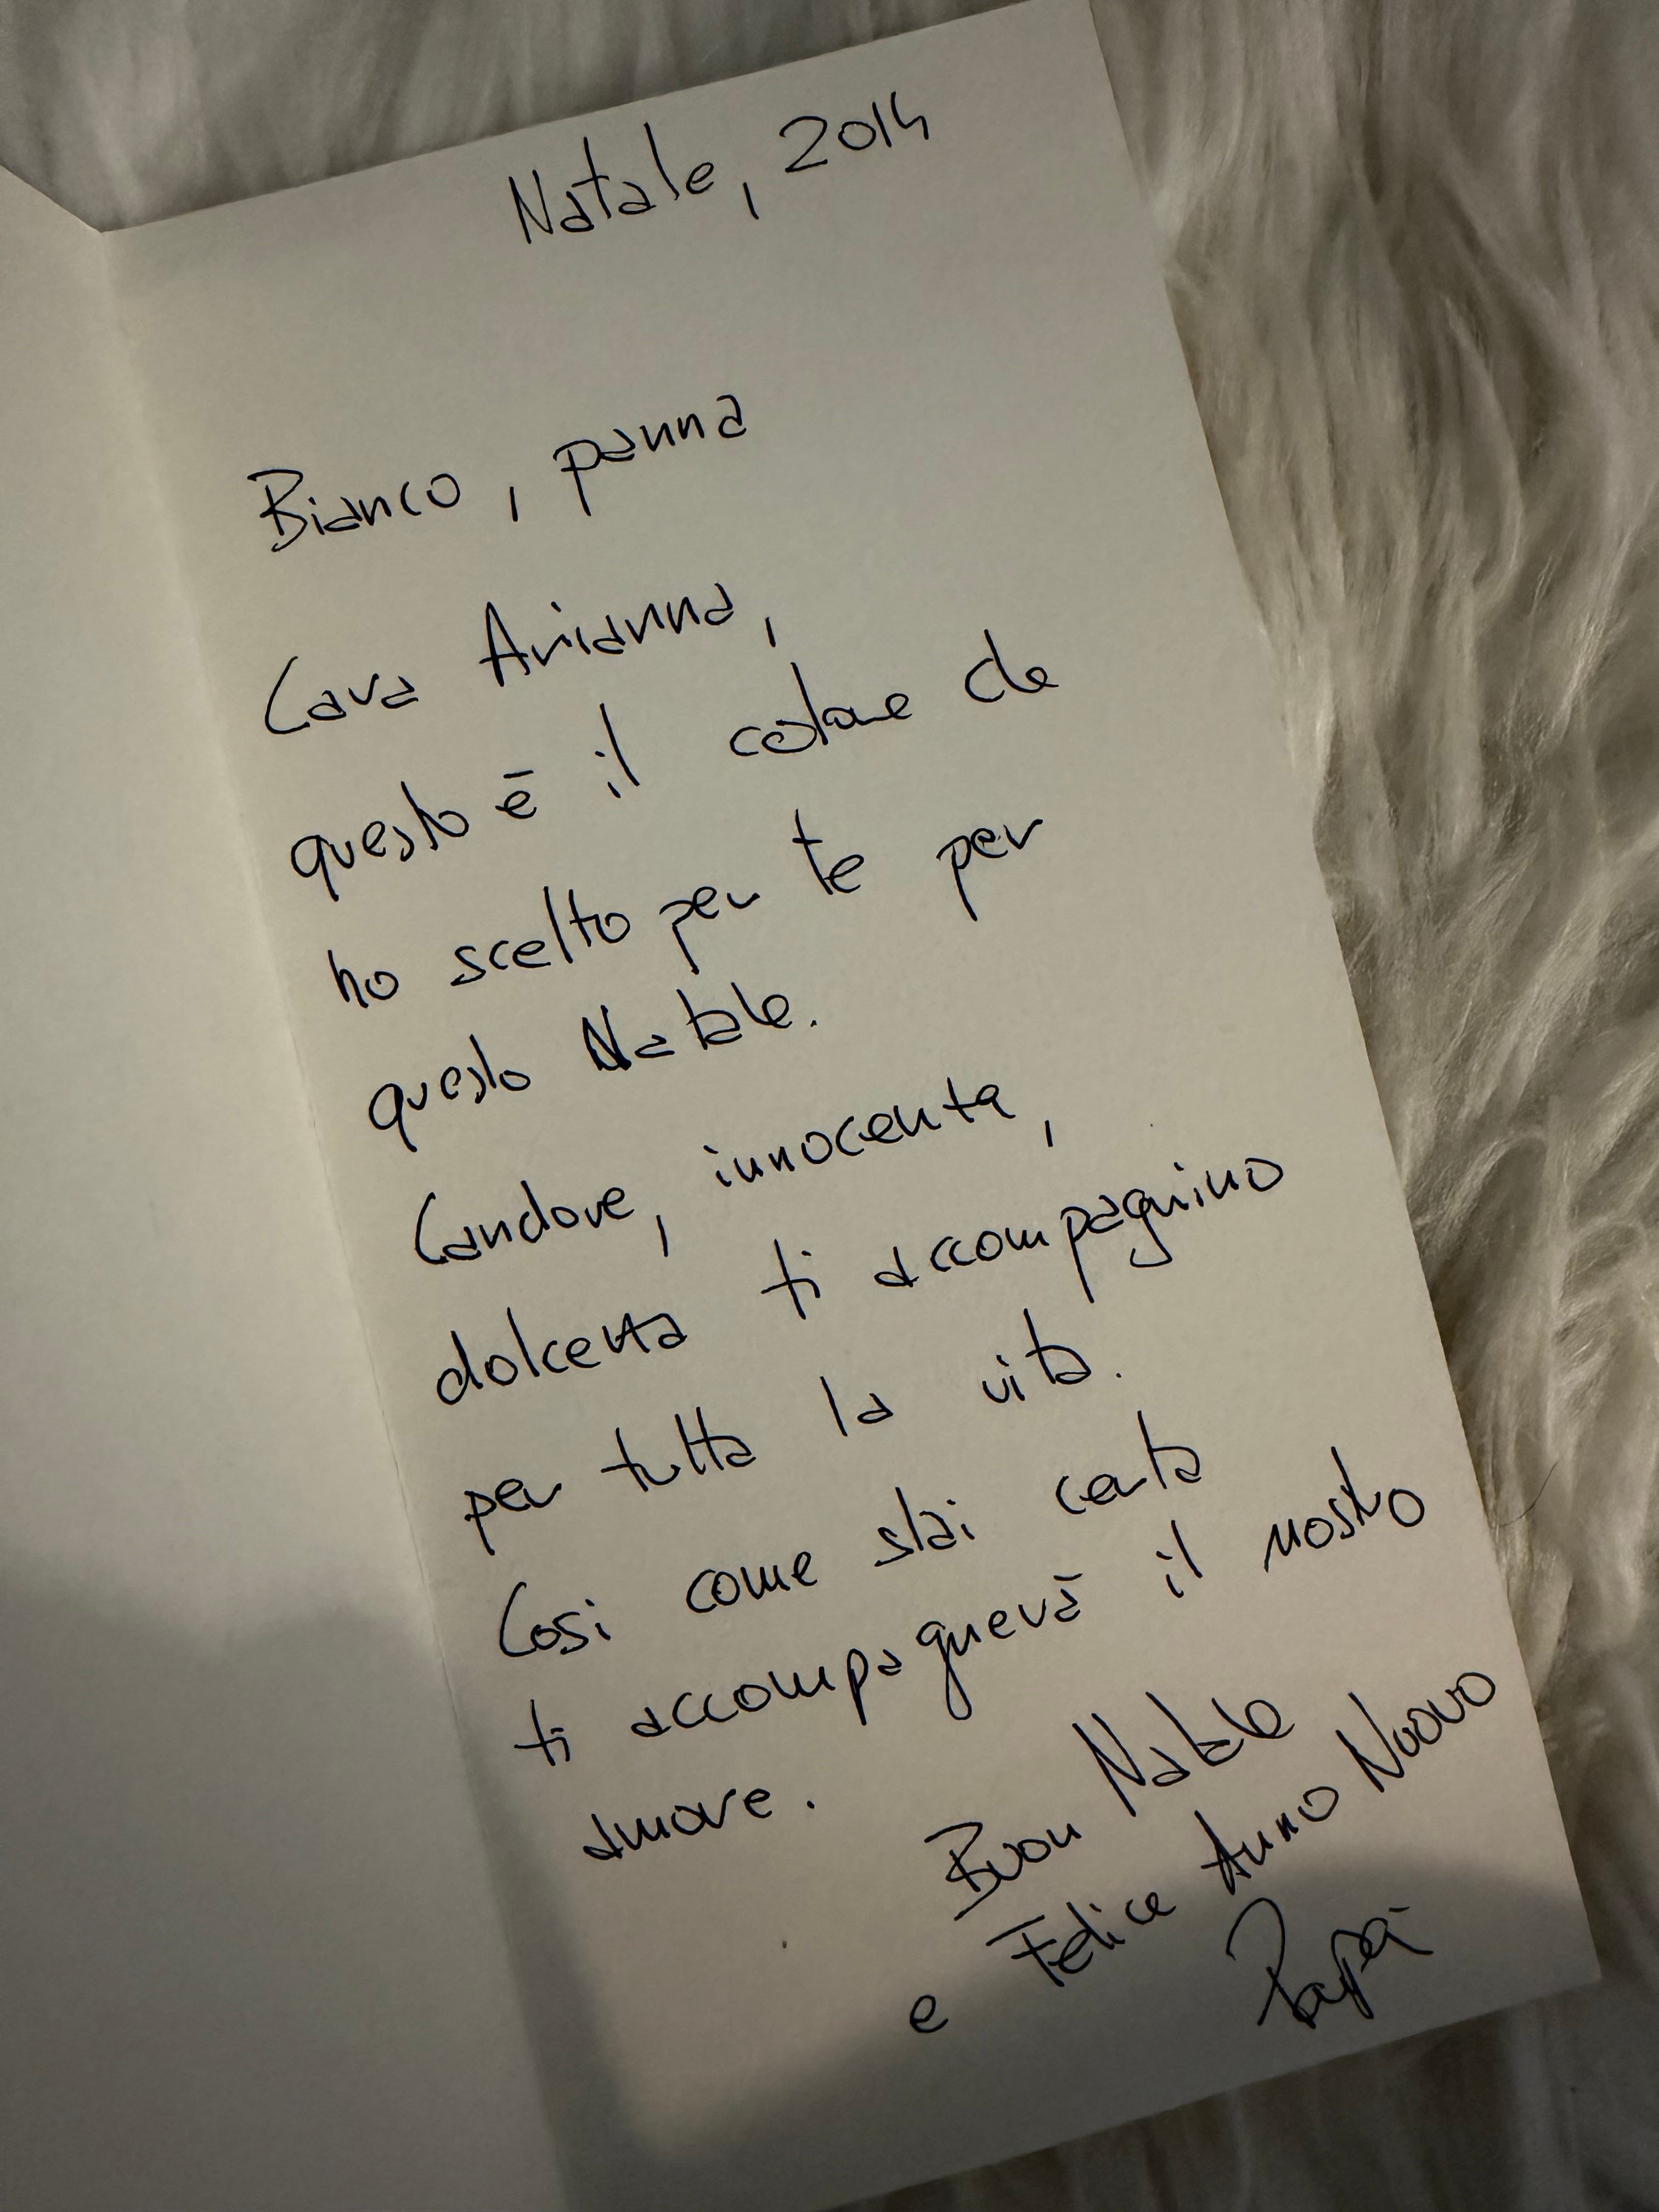 Natale, 2014
Bianco, panna
Cara Arianna,
questo è il colore che
ho scelto per te per
questo Natale.
Candore, innocenza,
dolcezza ti accompagnino
per tutta la vita.
Così come stai certa
ti accompagnerà il nostro
amore.
Buon Natale
e Felice Anno Nuovo
Papà